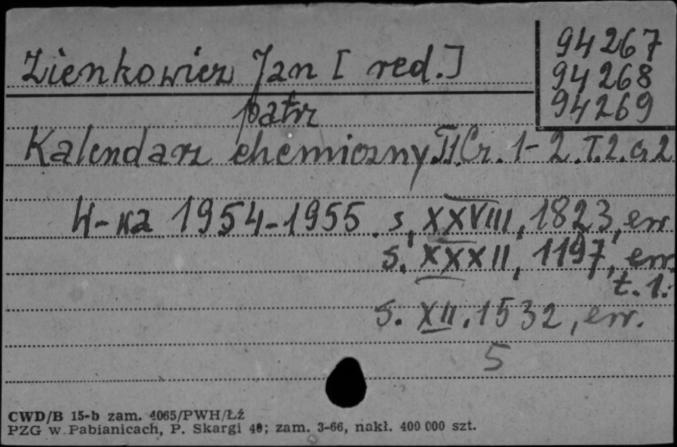 94267
94268
94269
Zienkowicz Jan [red.]
patrz
Kalendarz chemiczny T.1.Cz. 1-2. T.2. cz 2
W-wa 1954-1955. s. XXVIII, 1823, err
s. XXXII, 1197, err
t. 1.
s. XII. 1532, err.
5
CWD/B 15-b zam. 4065/PWH/Łź
PZG w Pabianicach, P. Skargi 40; zam. 3-66, nakł. 400 000 szt.